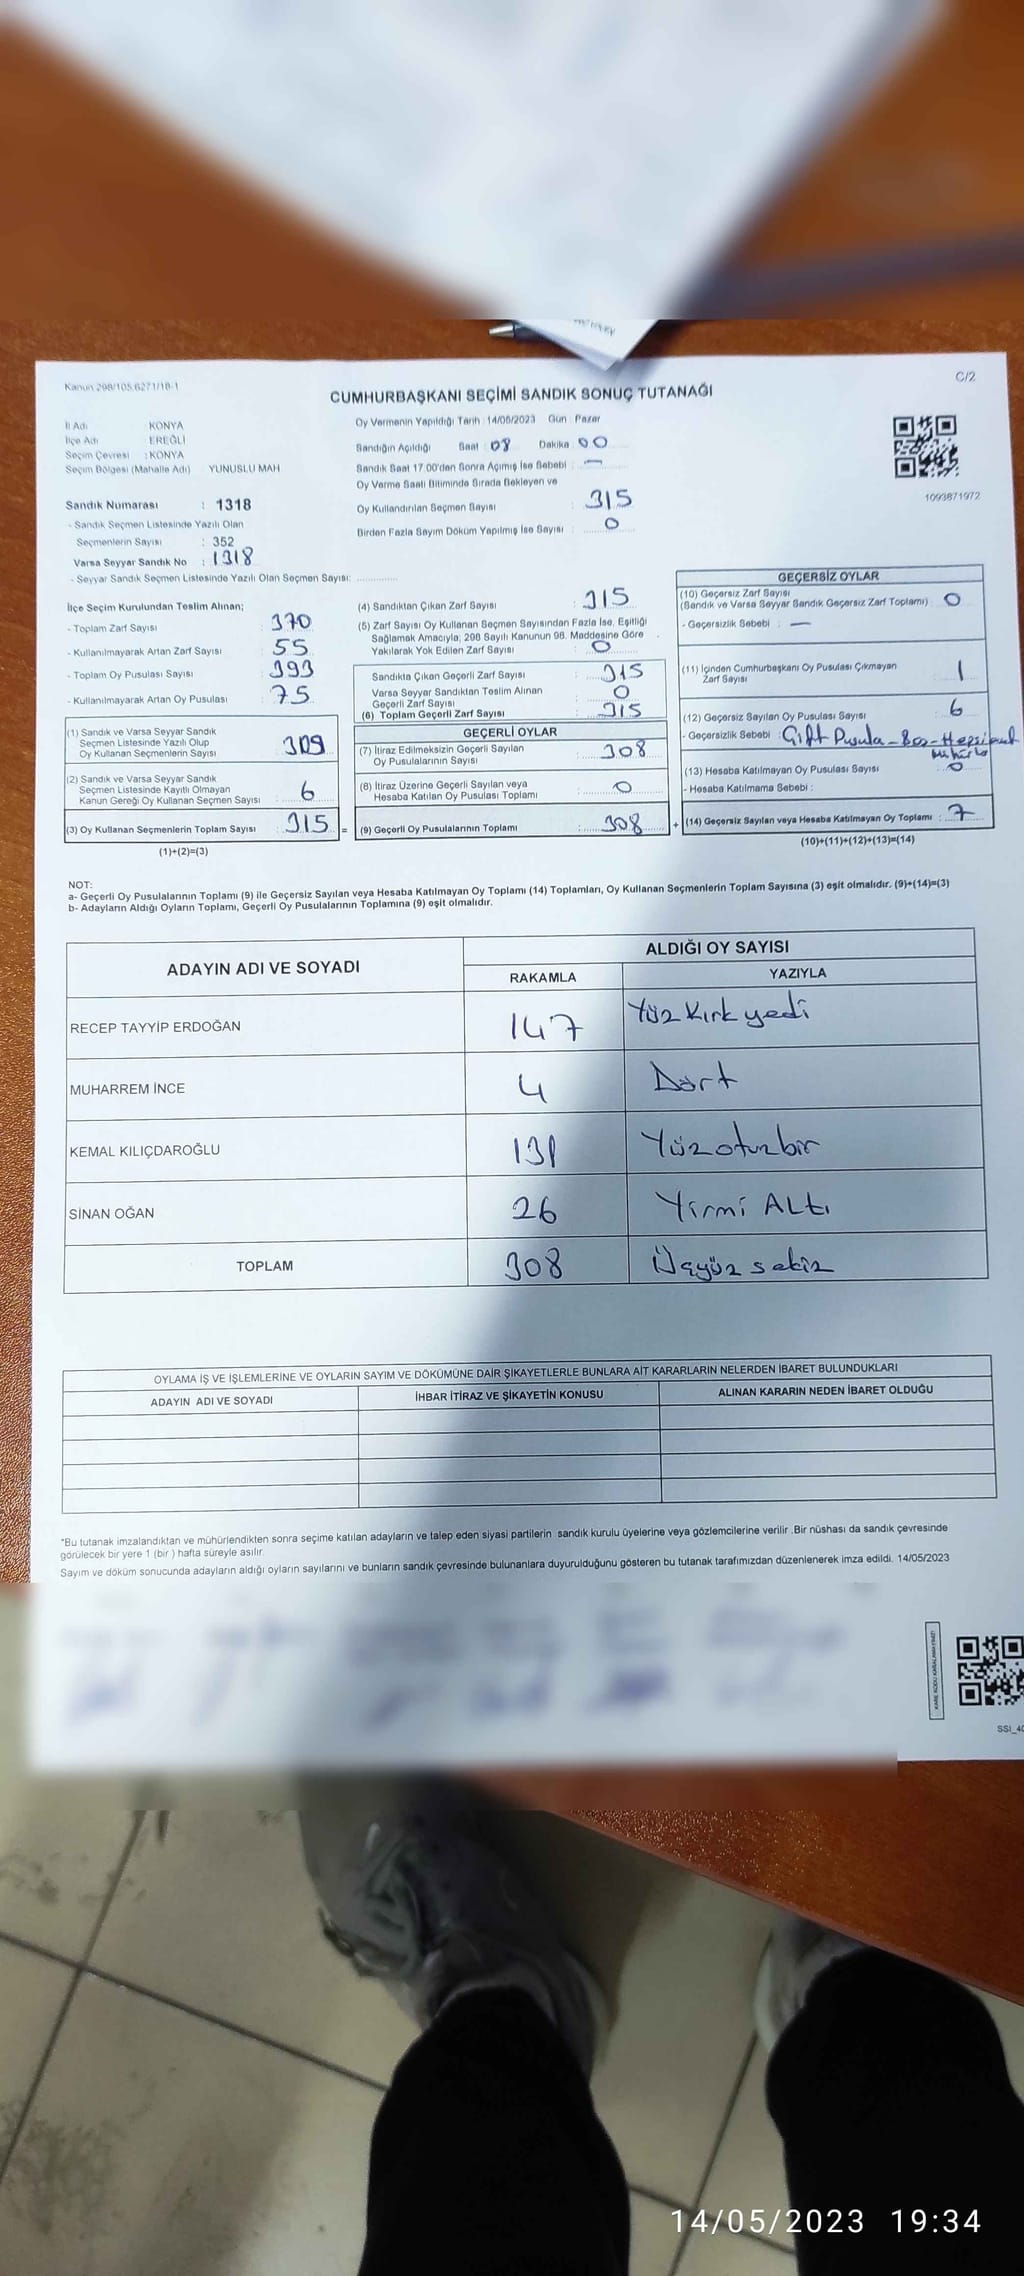 Kanun 298/105,6271/18-1
C/2
CUMHURBAŞKANI SEÇİMİ SANDIK SONUÇ TUTANAĞI
İl Adı KONYA
İlçe Adı EREĞLİ
Seçim Çevresi : KONYA
Seçim Bölgesi (Mahalle Adı) YUNUSLU MAH
Sandık Numarası : 1318
- Sandık Seçmen Listesinde Yazılı Olan
Seçmenlerin Sayısı : 352
Varsa Seyyar Sandık No : 1318
- Seyyar Sandık Seçmen Listesinde Yazılı Olan Seçmen Sayısı: ..............
Oy Vermenin Yapıldığı Tarih : 14/05/2023 Gün : Pazar
Sandığın Açıldığı Saat : 08 Dakika 00
Sandık Saat 17.00'den Sonra Açılmış İse Sebebi : —
Oy Verme Saati Bitiminde Sırada Bekleyen ve
Oy Kullandırılan Seçmen Sayısı : 315
Birden Fazla Sayım Döküm Yapılmış İse Sayısı : 0
1093871972
İlçe Seçim Kurulundan Teslim Alınan;
- Toplam Zarf Sayısı : 370
- Kullanılmayarak Artan Zarf Sayısı : 55
- Toplam Oy Pusulası Sayısı : 393
- Kullanılmayarak Artan Oy Pusulası : 75
(1) Sandık ve Varsa Seyyar Sandık
Seçmen Listesinde Yazılı Olup
Oy Kullanan Seçmenlerin Sayısı 309
(2) Sandık ve Varsa Seyyar Sandık
Seçmen Listesinde Kayıtlı Olmayan
Kanun Gereği Oy Kullanan Seçmen Sayısı : 6
(3) Oy Kullanan Seçmenlerin Toplam Sayısı : 315
(1)+(2)=(3)
(4) Sandıktan Çıkan Zarf Sayısı : 315
(5) Zarf Sayısı Oy Kullanan Seçmen Sayısından Fazla İse, Eşitliği
Sağlamak Amacıyla; 298 Sayılı Kanunun 98. Maddesine Göre
Yakılarak Yok Edilen Zarf Sayısı : 0
Sandıkta Çıkan Geçerli Zarf Sayısı : 315
Varsa Seyyar Sandıktan Teslim Alınan
Geçerli Zarf Sayısı : 0
(6) Toplam Geçerli Zarf Sayısı : 315
GEÇERLİ OYLAR
(7) İtiraz Edilmeksizin Geçerli Sayılan
Oy Pusulalarının Sayısı : 308
(8) İtiraz Üzerine Geçerli Sayılan veya
Hesaba Katılan Oy Pusulası Toplamı : 0
= (9) Geçerli Oy Pusulalarının Toplamı : 308
GEÇERSİZ OYLAR
(10) Geçersiz Zarf Sayısı
(Sandık ve Varsa Seyyar Sandık Geçersiz Zarf Toplamı) : 0
- Geçersizlik Sebebi : —
(11) İçinden Cumhurbaşkanı Oy Pusulası Çıkmayan
Zarf Sayısı : 1
(12) Geçersiz Sayılan Oy Pusulası Sayısı : 6
- Geçersizlik Sebebi : Çift Pusula - Boş - Hepsi
(13) Hesaba Katılmayan Oy Pusulası Sayısı : 0
- Hesaba Katılmama Sebebi :
+ (14) Geçersiz Sayılan veya Hesaba Katılmayan Oy Toplamı : 7
(10)+(11)+(12)+(13)=(14)
NOT:
a- Geçerli Oy Pusulalarının Toplamı (9) ile Geçersiz Sayılan veya Hesaba Katılmayan Oy Toplamı (14) Toplamları, Oy Kullanan Seçmenlerin Toplam Sayısına (3) eşit olmalıdır. (9)+(14)=(3)
b- Adayların Aldığı Oyların Toplamı, Geçerli Oy Pusulalarının Toplamına (9) eşit olmalıdır.
ADAYIN ADI VE SOYADI ALDIĞI OY SAYISI
RAKAMLA YAZIYLA
RECEP TAYYİP ERDOĞAN 147 Yüz Kırk yedi
MUHARREM İNCE 4 Dört
KEMAL KILIÇDAROĞLU 131 Yüzotuzbir
SİNAN OĞAN 26 Yirmi Altı
TOPLAM 308 Üçyüz sekiz
OYLAMA İŞ VE İŞLEMLERİNE VE OYLARIN SAYIM VE DÖKÜMÜNE DAİR ŞİKAYETLERLE BUNLARA AİT KARARLARIN NELERDEN İBARET BULUNDUKLARI
ADAYIN ADI VE SOYADI İHBAR İTİRAZ VE ŞİKAYETİN KONUSU ALINAN KARARIN NEDEN İBARET OLDUĞU
*Bu tutanak imzalandıktan ve mühürlendikten sonra seçime katılan adayların ve talep eden siyasi partilerin sandık kurulu üyelerine veya gözlemcilerine verilir .Bir nüshası da sandık çevresinde
görülecek bir yere 1 (bir ) hafta süreyle asılır.
Sayım ve döküm sonucunda adayların aldığı oyların sayılarını ve bunların sandık çevresinde bulunanlara duyurulduğunu gösteren bu tutanak tarafımızdan düzenlenerek imza edildi. 14/05/2023
14/05/2023 19:34